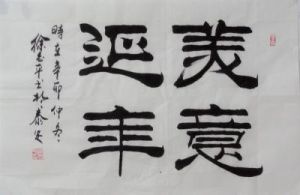 美意
延年
時在辛卯仲冬
徐平书於泰安